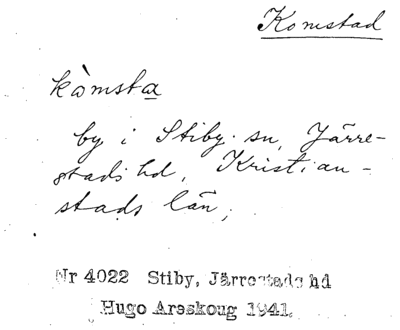 Komstad
kòmsta
by i Stiby sn, Järre-
stads hd, Kristian-
stads län;
Nr 4022 Stiby, Järrestads hd
Hugo Areskoug 1941.